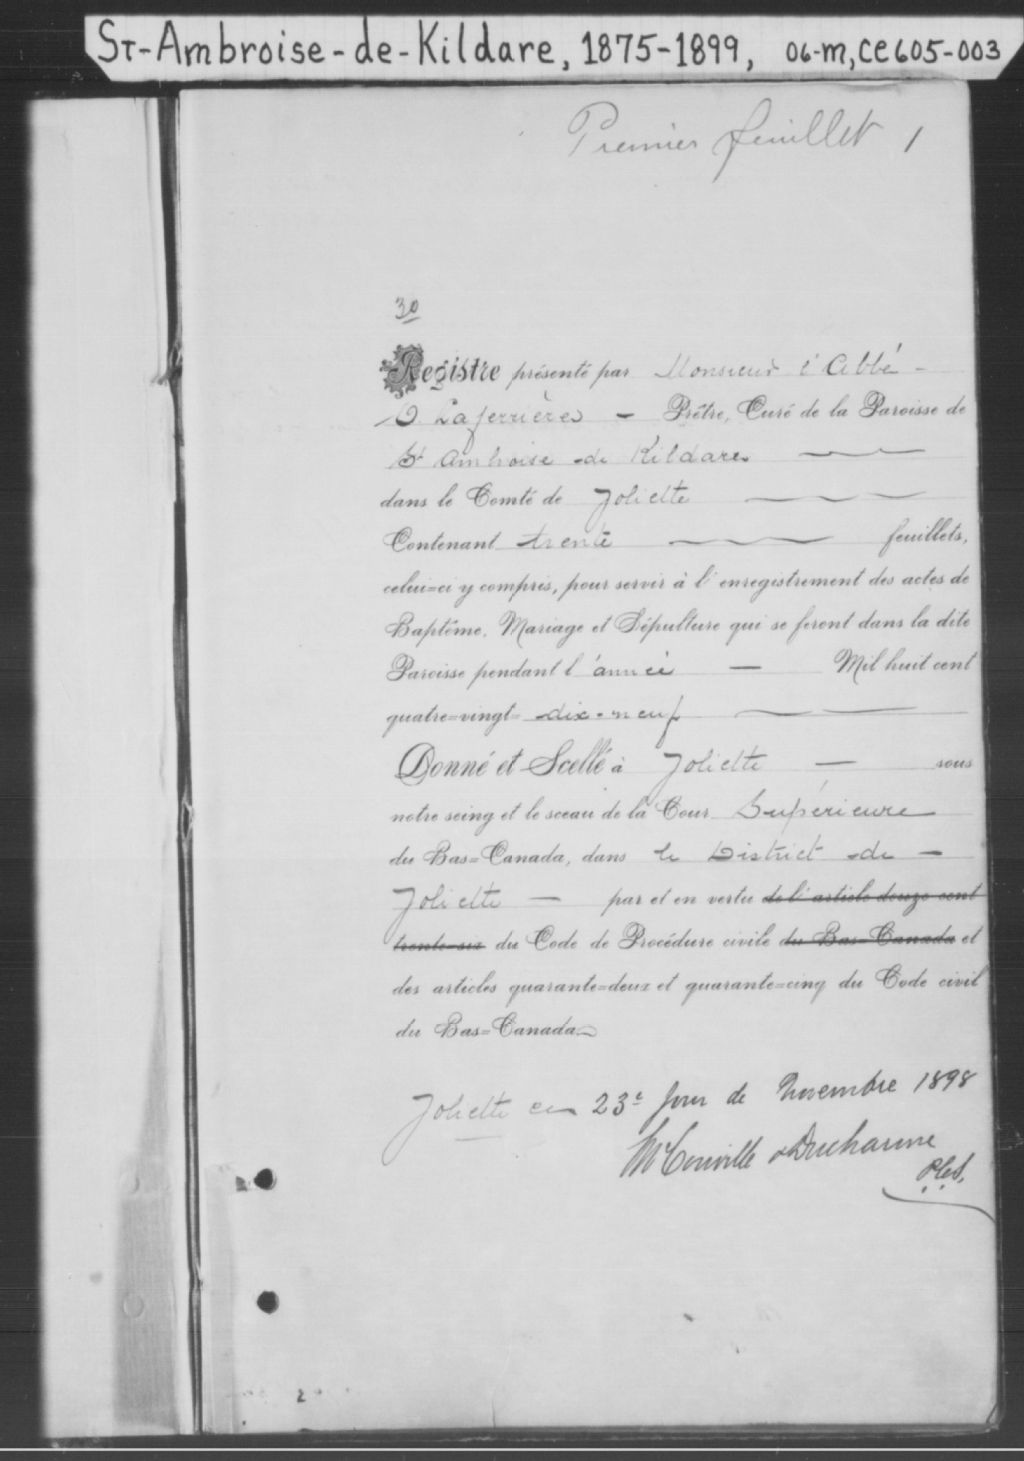 ST-Ambroise-de-Kildare, 1875-1899, 06-M, CE605-003
Premier feuillet 1
30
Registre présenté par Monsieur l'Abbé -
O. Laferrière - Prêtre, Curé de la Paroisse de
St Ambroise de Kildare
dans le Comté de Joliette
Contenant trente feuillets,
celui=ci y compris, pour servir à l'enregistrement des actes de
Baptême, Mariage et Sépulture qui se feront dans la dite
Paroisse pendant l'année - Mil huit cent
quatre=vingt=dix-neuf
Donné et Scellé à Joliette - sous
notre seing et le sceau de la Cour Supérieure
du Bas=Canada, dans le District de -
Joliette - par et en vertu de l'article douze cent
trente-six du Code de Procédure civile du Bas-Canada et
des articles quarante=deux et quarante=cinq du Code civil
du Bas=Canada
Joliette ce 23e jour de Novembre 1898
Ducharme
2